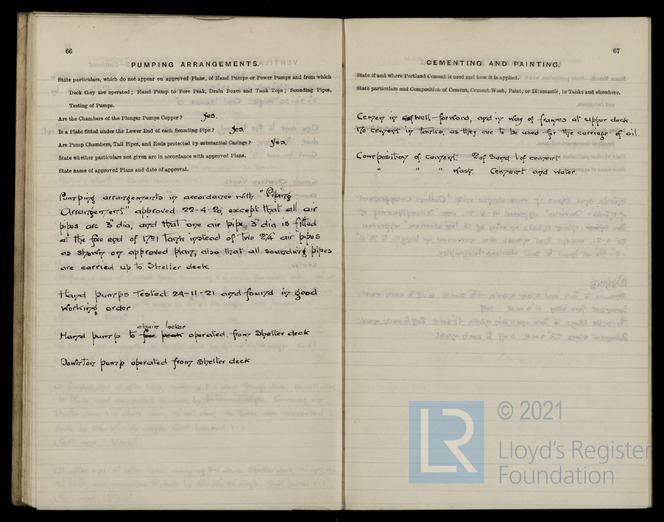 66
PUMPING ARRANGEMENTS.
State particulars, which do not appear on approved Plans, of Hand Pumps or Power Pumps and from which
Deck they are operated; Hand Pump to Fore Peak, Drain Boxes and Tank Tops; Sounding Pipes,
Testing of Pumps.
Are the Chambers of the Plunger Pumps Copper? Yes.
Is a Plate fitted under the Lower End of each Sounding Pipe? Yes
Are Pump Chambers, Tail Pipes, and Rods protected by substantial Casings? Yes.
State whether particulars not given are in accordance with approved Plans.
State name of approved Plans and date of approval.
Pumping arrangements in accordance with "Piping
Arrangement" approved 22-4-20, except that all air
pipes are 3" dia, and that one air pipe 3" dia is fitted
at the fore end of No1 tank instead of two 2¼" air pipes
as shown on approved plan, also that all sounding pipes
are carried up to Shelter deck
Hand pumps tested 24-11-21 and found in good
working order
chain locker
Hand pump to fore peak operated from Shelter deck
Downton pump operated from Shelter deck
67
CEMENTING AND PAINTING.
State if and where Portland Cement is used and how it is applied.
State particulars and Composition of Cement, Cement Wash, Paint, or Bitumastic, in Tanks and elsewhere.
Cement in well forward, and in way of frames at upper deck.
No cement in tanks, as they are to be used for the carriage of oil.
Composition of Cement 2 of Sand 1 of cement
" " " Wash. Cement and water
LR
© 2021
Lloyd's Register
Foundation